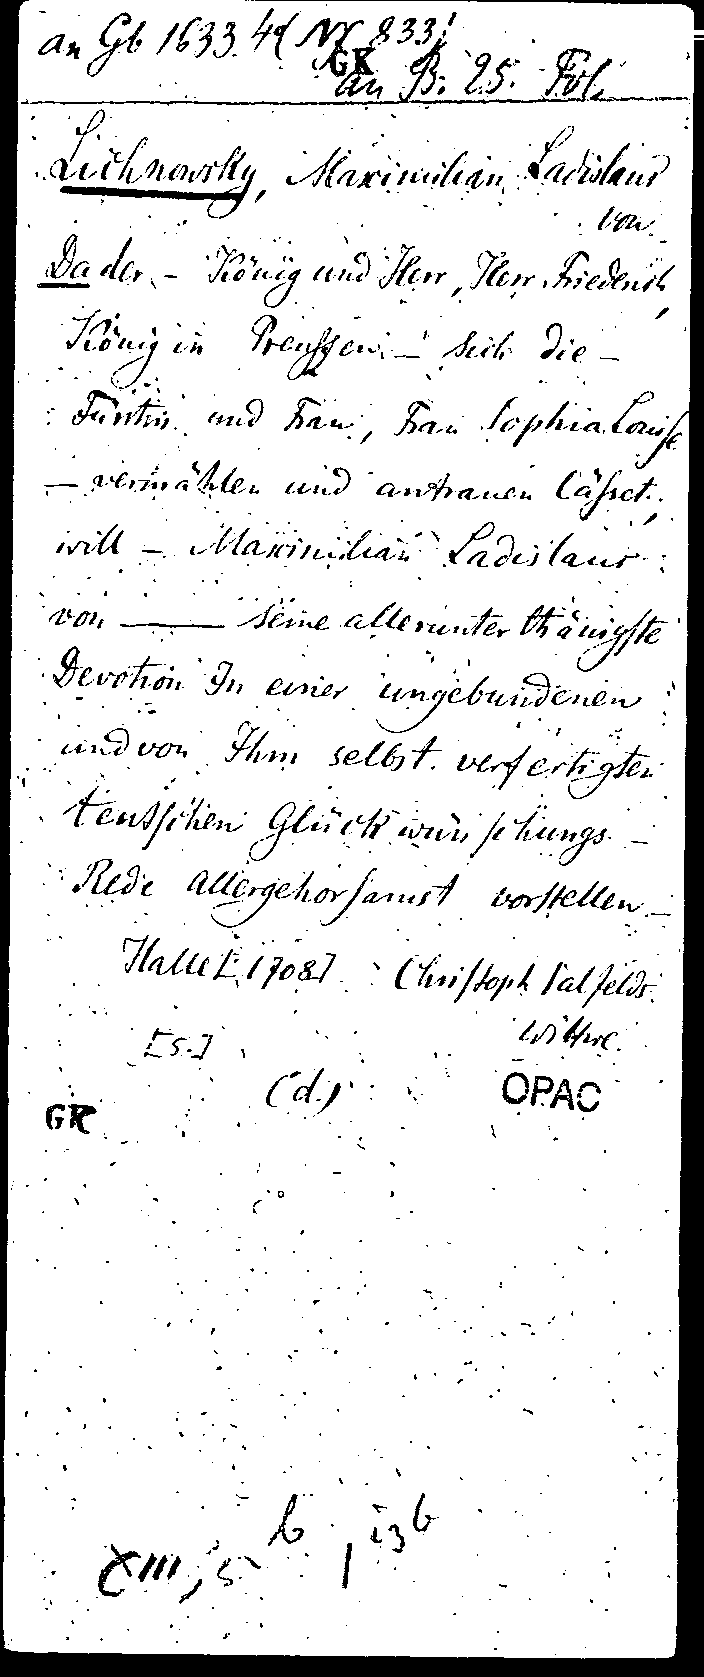 an Gb 1633. 4° (Nr 833)
GK
an B. 25. Fol.
Lichnowsky, Maximilian Ladislaus
von
Da der – König und Herr, Herr Friederich,
König in Preussen – sich die –
Fürstin und Frau, Frau Sophia Louise
– vermählen und antrauen lässet,
will – Maximilian Ladislaus
von —— seine allerunterthänigste
Devotion In einer ungebundenen
und von Ihm selbst verfertigten
teutschen Glückwünschungs-
Rede allergehorsamst vorstellen –
Halle [1708] Christoph Salfelds
Wittwe.
[S.]
(d.)
OPAC
GK
XIII, 5 b, 23 b